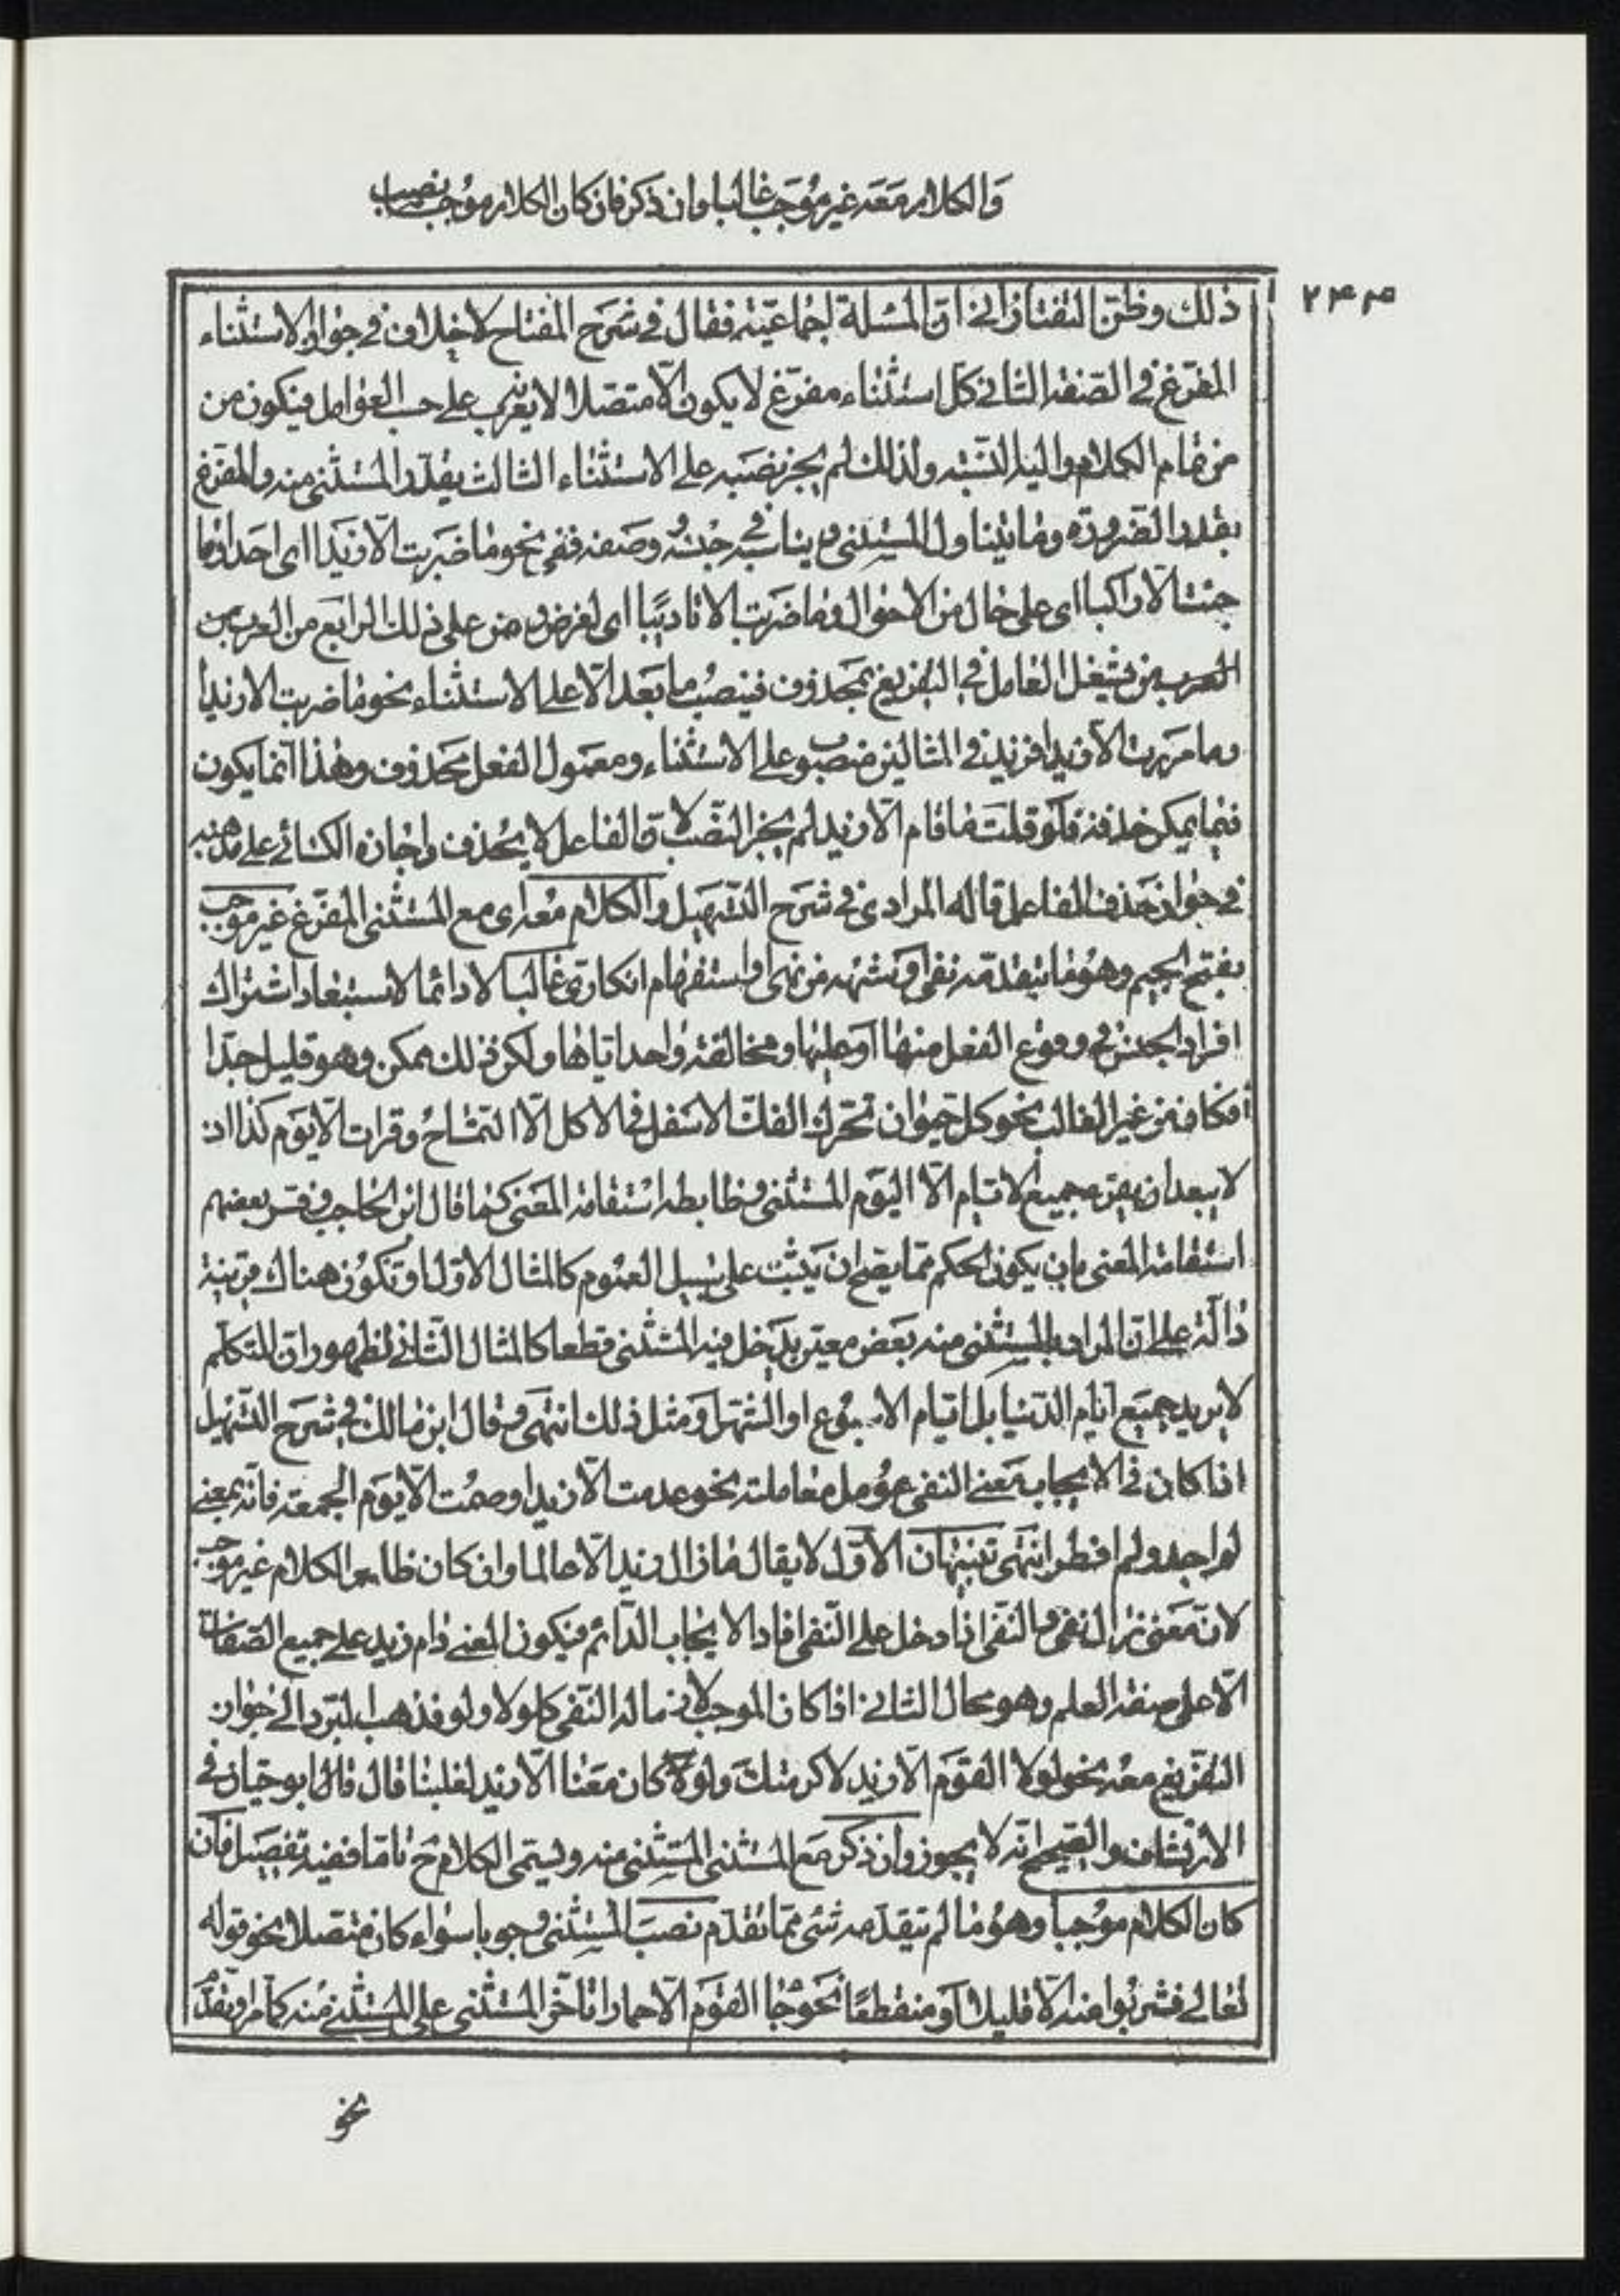 والكلام معه غير موجب غالبا وان ذكر فان كان الكلام موجبا نصب
۲۴۳
ذلك وظن التفتازاني ان المسئلة اجماعية فقال في شرح المفتاح لا خلاف في جواز الاستثناء
المفرغ في الصفة الثاني كل استثناء مفرغ لا يكون الا متصلا لا يعرب على حسب العوامل فيكون من
من تمام الكلام واليا النسبة ولذلك لم يجز نصبه على الاستثناء الثالث يقدر المستثنى منه والمفرغ
بقدر الضرورة وما يتناول المستثنى ويناسبه في جنسه وصفته ففي نحو ما ضربت الا زيدا اي احدا وما
جئت الا راكبا اي على حال من الاحوال وما ضربت الا تاديبا اي لغرض على ذلك الرابع من العرب من
العرب من يشغل العامل في التفريغ بمحذوف فينصب ما بعد الا على الاستثناء نحو ما ضربت الا زيدا
وما مررت الا زيدا فزيد في المثالين منصوب على الاستثناء ومعمول الفعل محذوف وهذا انما يكون
فيما يمكن حذفه فلو قلت ما قام الا زيد لم يجز النصب لان الفاعل لا يحذف واجازه الكسائي على مذهبه
في جواز حذف الفاعل قاله المرادي في شرح التسهيل والكلام معه اي مع المستثنى المفرغ غير موجب
بفتح الجيم وهو ما يتقدمه نفي او شبهه من نهي او استفهام انكاري غالبا لا دائما لاستبعاد اشتراك
افراد الجنس في وقوع الفعل منها او عليها ومخالفة واحد اياها ولكن ذلك ممكن وهو قليل جدا
فكا فمن غير الغالب نحو كل حيوان تحرك الفك الاسفل في الاكل الا التمساح وقرات الا يوم كذا اذ
لا يبعد ان يقرء جميع الايام الا اليوم المستثنى وظابطه استقامة المعنى كما قال ابن الحاجب وفسر بعضهم
استقامة المعنى بان يكون الحكم مما يصح ان يثبت على سبيل العموم كالمثال الاول او تكون هناك قرينة
دالة على ان المراد بالمستثنى منه بعض معين يدخل فيه المستثنى قطعا كالمثال الثاني لظهور ان المتكلم
لا يريد جميع ايام الدنيا بل ايام الاسبوع او الشهر ومثل ذلك انتهى وقال ابن مالك في شرح التسهيل
اذا كان في الايجاب معنى النفي عومل معاملته نحو عدمت الا زيدا وصمت الا يوم الجمعة فانه بمعنى
لم اجد ولم افطر انتهى تنبيهان الاول لا يقال ما زال زيد الا عالما وان كان ظاهر الكلام غير موجب
لان معنى زال نفي والنفي اذا دخل على النفي افاد الايجاب الدائم فيكون المعنى دام زيد على جميع الصفات
الا على صفة العلم وهو محال الثاني اذا كان الموجب لازما له النفي كلولا ولو فذهب المبرد الى جواز
التفريغ معه نحو لولا القوم الا زيد لاكرمتك ولو كان معنا الا زيد لغلبنا قال قال ابو حيان في
الارتشاف والصحيح انه لا يجوز وان ذكر مع المستثنى المستثنى منه ويسمى الكلام ح تاما ففيه تفصيل فان
كان الكلام موجبا وهو ما لم يتقدمه شئ مما تقدم نصب المستثنى وجوبا سواء كان متصلا نحو قوله
تعالى فشربوا منه الا قليلا او منقطعا نحو جا القوم الا حمارا تاخر المستثنى على المستثنى منه كما مر او تقدم
نحو